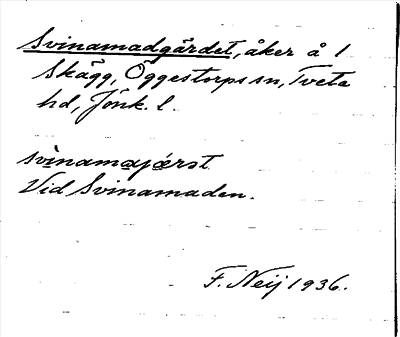 Svinamadgärdet, åker å 1
Skägg, Öggestorps sn, Tveta
hd, Jönk. l.
Vid Svinamaden.
F. Neij 1936.